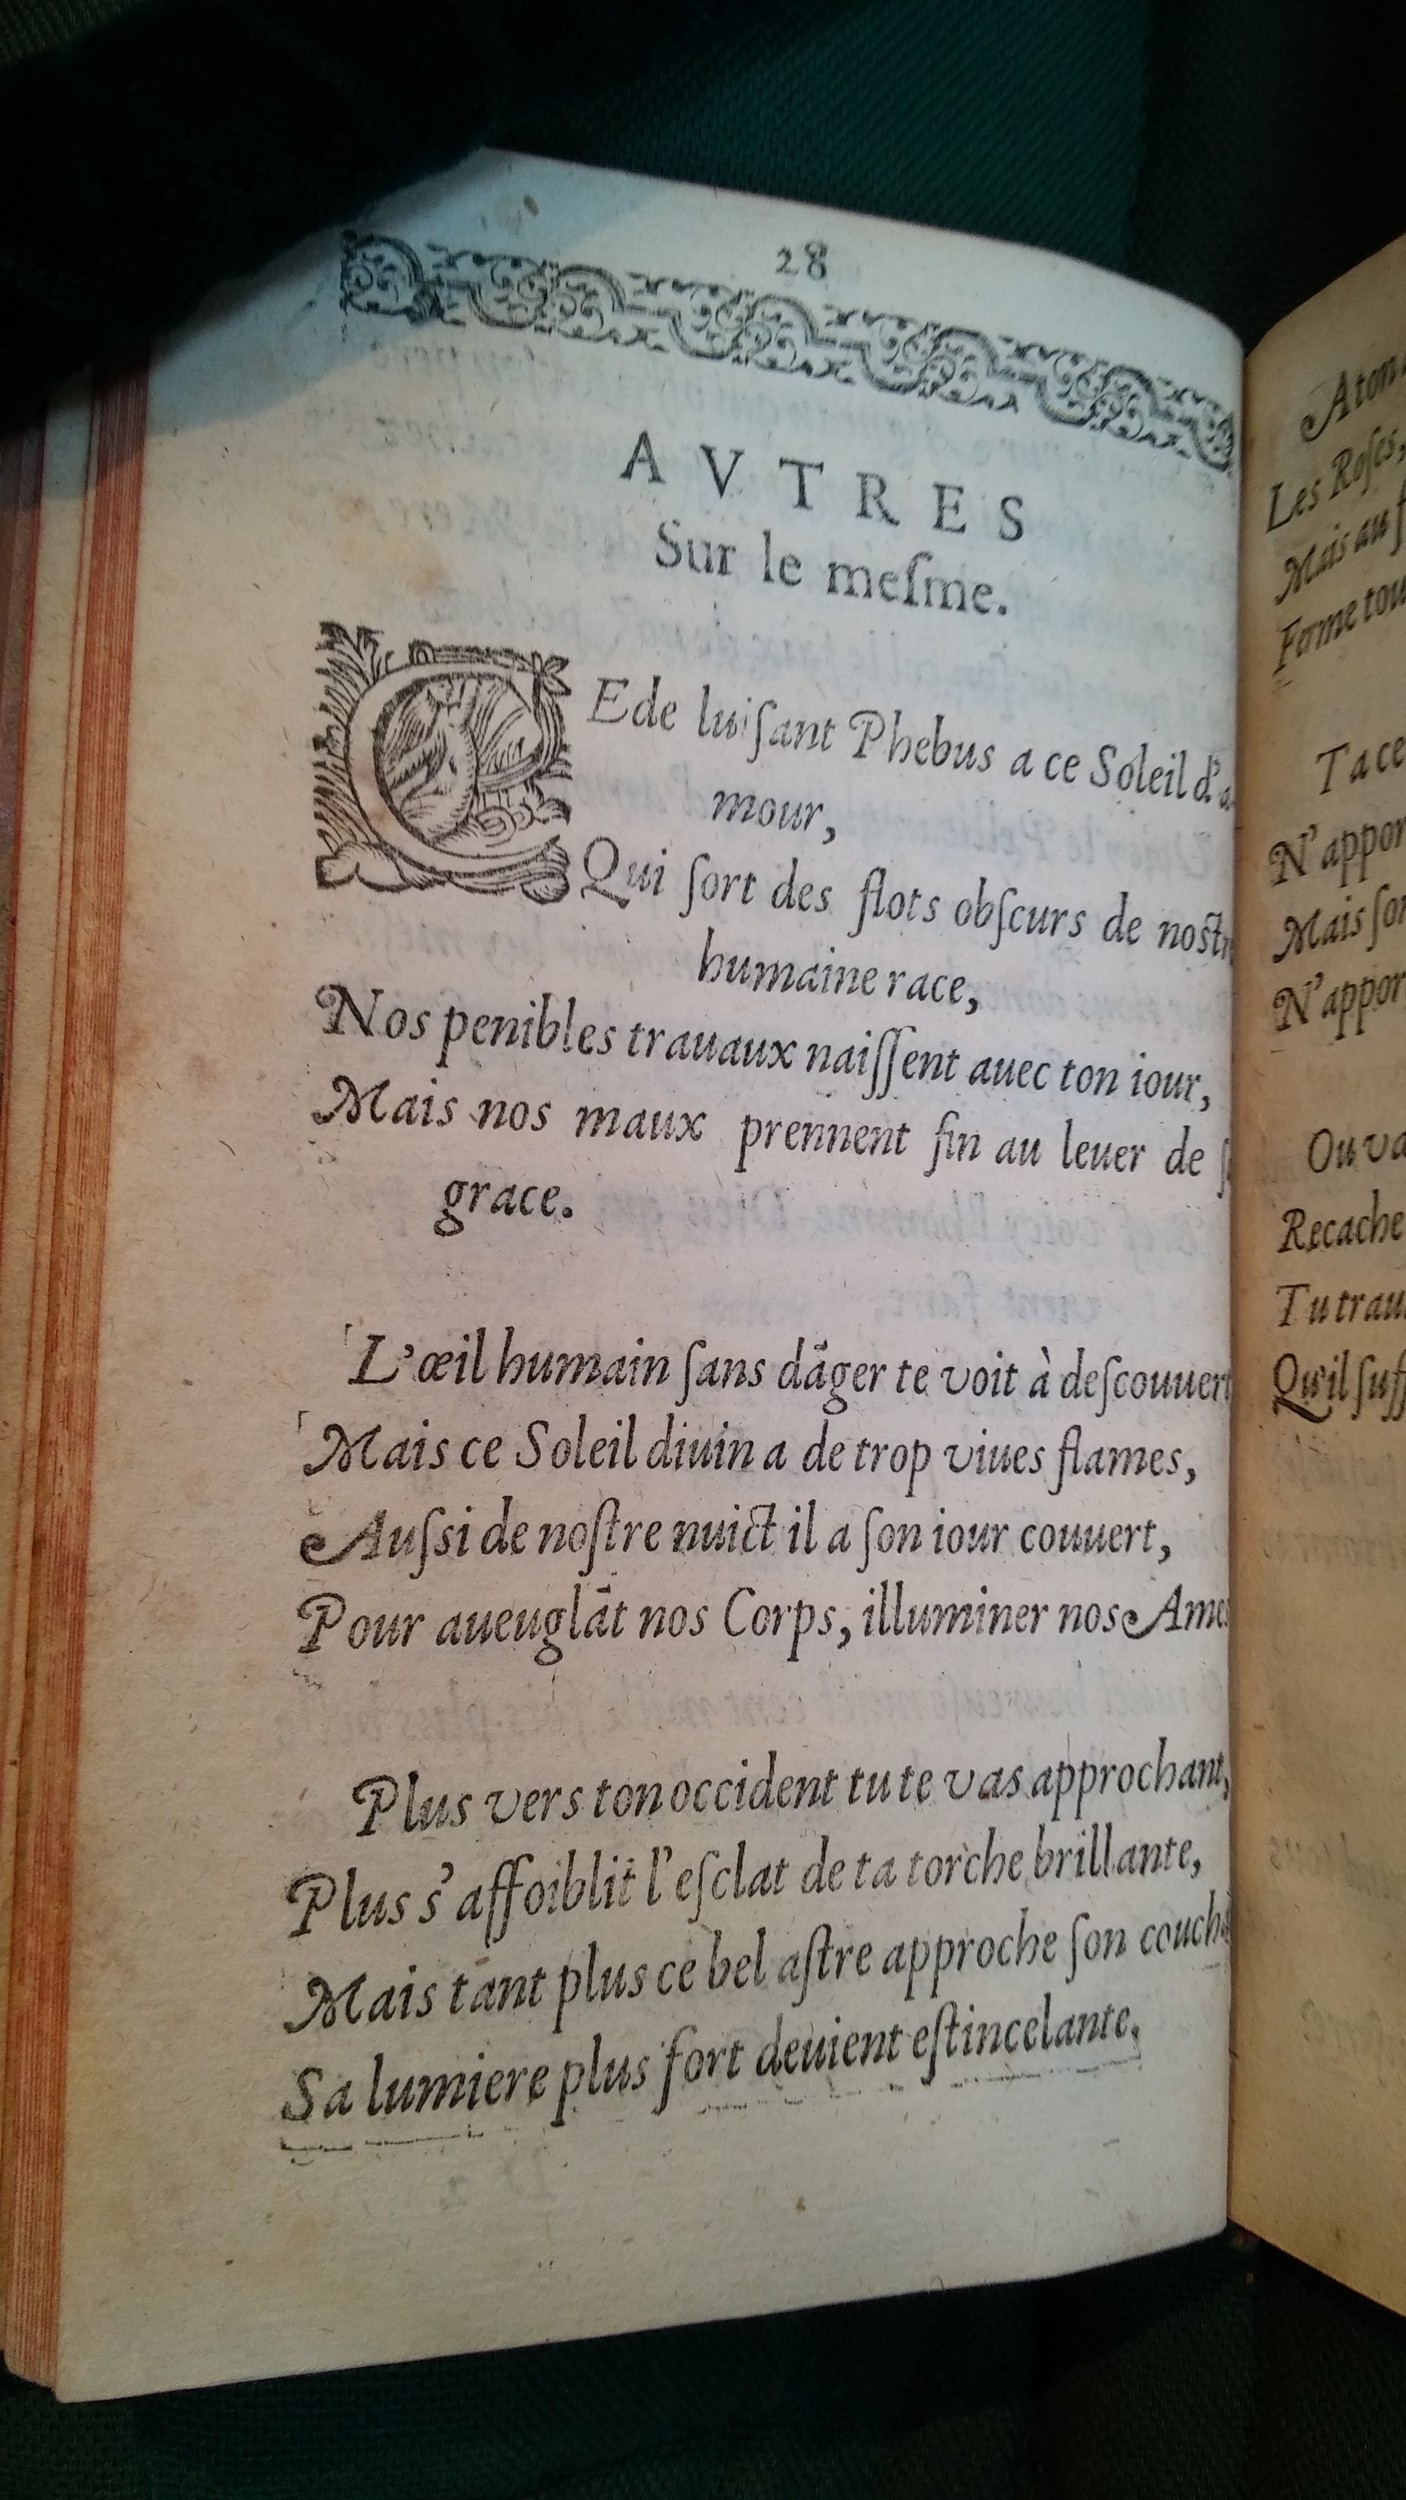 28
AVTRES
Sur le meſme.
CEde luiſant Phebus a ce Soleil d'a
mour,
Qui ſort des flots obſcurs de noſtr
humaine race,
Nos penibles trauaux naiſſent auec ton iour,
Mais nos maux prennent fin au leuer de
grace.
L'œil humain ſans dãger te voit à deſcouuert
Mais ce Soleil diuin a de trop viues flames,
Auſsi de noſtre nuict il a ſon iour couuert,
Pour aueuglãt nos Corps, illuminer nos Ame
Plus vers ton occident tu te vas approchant,
Plus s'affoiblit l'eſclat de ta torche brillante,
Mais tant plus ce bel aſtre approche ſon couchã
Sa lumiere plus fort deuient eſtincelante.
Atom
Les Roſes,
Mais au ſ
Ferme tou
Ta ce
N'appor
Mais ſon
N'appor
Ou va
Recache
Tu trau
Qu'il ſuff